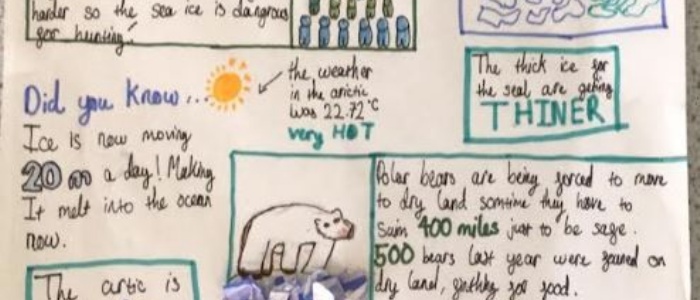 harder so the sea ice is dangrous
for hunting!
Did you know...
the weather
in the arictic
was 22.72°C
very HOT
The thick ice for
the seal are geting
THINER
Ice is now moving
20 m a day! Making
It melt into the ocean
now.
Polar bears are being forced to move
to dry land somtime they have to
swim 400 miles just to be safe.
500 bears last year were found on
dry land, for food.
The artic is